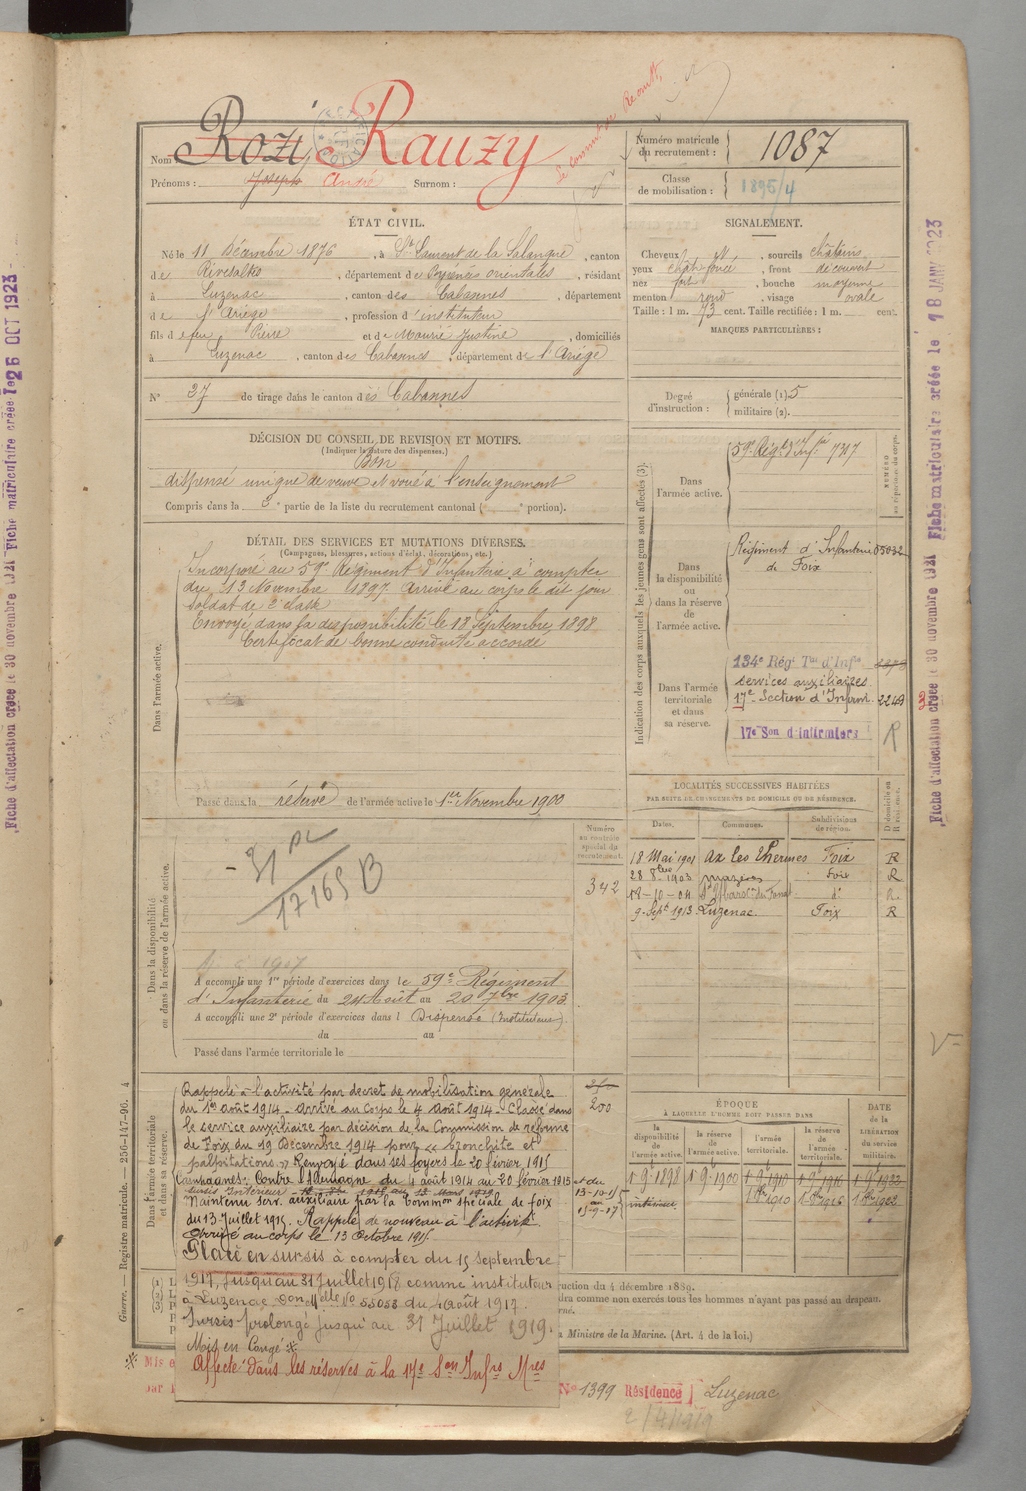 Nom Rozi Rauzy
Prénoms : Joseph André Surnom :
Le commandt de Recrutt,
Numéro matricule du recrutement : 1087
Classe de mobilisation : 1895/4
ÉTAT CIVIL.
Né le 11 Décembre 1876, à St Laurent de la Salanque, canton
de Rivesaltes, département des Pyrénées orientales, résidant
à Luzenac, canton des Cabannes, département
de l'Ariège, profession d'instituteur
fils de feu Pierre et de Maurié Justine, domiciliés
à Luzenac, canton des Cabannes, département de l'Ariège
N° 27 de tirage dans le canton des Cabannes
SIGNALEMENT.
Cheveux , sourcils châtains
yeux chât. foncé, front découvert
nez fort, bouche moyenne
menton rond, visage ovale
Taille : 1 m. 73 cent. Taille rectifiée : 1 m. cent.
MARQUES PARTICULIÈRES :
Degré d'instruction : générale (1) 5
militaire (2).
DÉCISION DU CONSEIL DE REVISION ET MOTIFS.
(Indiquer la nature des dispenses.)
Bon
dispensé unique de veuve et voué à l'enseignement
Compris dans la 2e partie de la liste du recrutement cantonal ( portion).
DÉTAIL DES SERVICES ET MUTATIONS DIVERSES.
(Campagnes, blessures, actions d'éclat, décorations, etc.)
Dans l'armée active.
Incorporé au 59e Régiment d'Infanterie à compter
du 13 Novembre 1897. Arrivé au corps le dit jour
soldat de 2e classe
Envoyé dans la disponibilité le 18 Septembre 1898
Certificat de bonne conduite accordé
Passé dans la réserve de l'armée active le 1er Novembre 1900
Indication des corps auxquels les jeunes gens sont affectés (3).
NUMÉRO au répertoire du corps.
Dans l'armée active.
59e Régt d'Infie 7317
Dans la disponibilité ou dans la réserve de l'armée active.
Régiment d'Infanterie 05032
de Foix
Dans l'armée territoriale et dans sa réserve.
134e Régt Tal d'Infie
services auxiliaires
17e Section d'Infirm. 2249
17e Son d'Infirmiers R
LOCALITÉS SUCCESSIVES HABITÉES
PAR SUITE DE CHANGEMENTS DE DOMICILE OU DE RÉSIDENCE.
Dates. Communes. Subdivisions de région. D domicile ou R résidence.
18 Mai 1901 Ax les Thermes Foix R
28 8bre 1903 Mazères Foix R
18-10-04 d° R
9 Sept 1913 Luzenac. Foix R
Dans la disponibilité ou dans la réserve de l'armée active.
Numéro au contrôle spécial du recrutement.
342
31
17165 B
1907
A accompli une 1re période d'exercices dans le 59e Régiment
d'Infanterie du 24 Août au 20 7bre 1903
A accompli une 2e période d'exercices dans l Dispensé (Instituteur)
du au
Passé dans l'armée territoriale le
Dans l'armée territoriale et dans sa réserve.
Rappelé à l'activité par décret de mobilisation générale
du 1er août 1914 - Arrivé au corps le 4 août 1914 - Classé dans
le service auxiliaire par décision de la Commission de réforme
de Foix du 19 Décembre 1914 pour « bronchite et
palpitations » Renvoyé dans ses foyers le 20 février 1915
Campagnes : Contre l'Allemagne du 4 août 1914 au 20 février 1915
et du 13-10-15 au 15-9-17 intérieur
Maintenu serv. auxiliaire par la Common spéciale de Foix
du 13 Juillet 1915. Rappelé de nouveau à l'activité
Arrivé au corps le 13 Octobre 1915.
Placé en sursis à compter du 15 septembre
1917, jusqu'au 31 Juillet 1918 comme instituteur
à Luzenac Don Melle No 55053 du 4 août 1917.
Sursis prolongé jusqu'au 31 Juillet 1919.
Mis en Congé ※
Affecté dans les réserves à la 17e Son Infrs Mres
200
ÉPOQUE
À LAQUELLE L'HOMME DOIT PASSER DANS
la disponibilité de l'armée active. la réserve de l'armée active. l'armée territoriale. la réserve de l'armée territoriale.
DATE de la LIBÉRATION du service militaire.
1 9 1898 1 9 1900 1 9 1910 1 9 1916 1 9 1922
1 8bre 1910 1 8bre 1916 1 8bre 1922
ruction du 4 décembre 1889.
dra comme non exercés tous les hommes n'ayant pas passé au drapeau.
rne.
a Ministre de la Marine. (Art. 4 de la loi.)
※ Mis e
par
N° 1399 Résidence Luzenac
2/4/1919
Guerre. — Registre matricule. — 256-147-96. 4
Fiche d'affectation créée le 30 novembre 1921 Fiche matriculaire créée le 26 OCT 1923
Fiche d'affectation créée le 30 novembre 1921 Fiche matriculaire créée le 18 JANV 1923